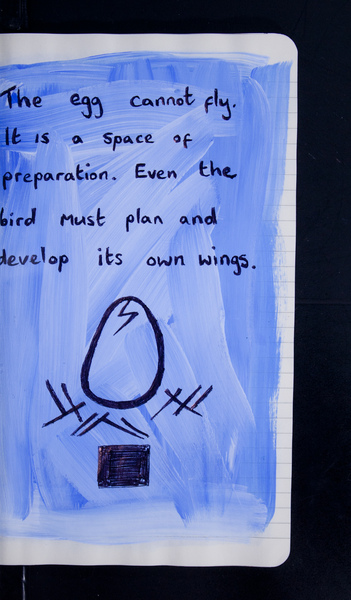 The egg cannot fly.
It is a space of
preparation. Even the
bird must plan and
develop its own wings.